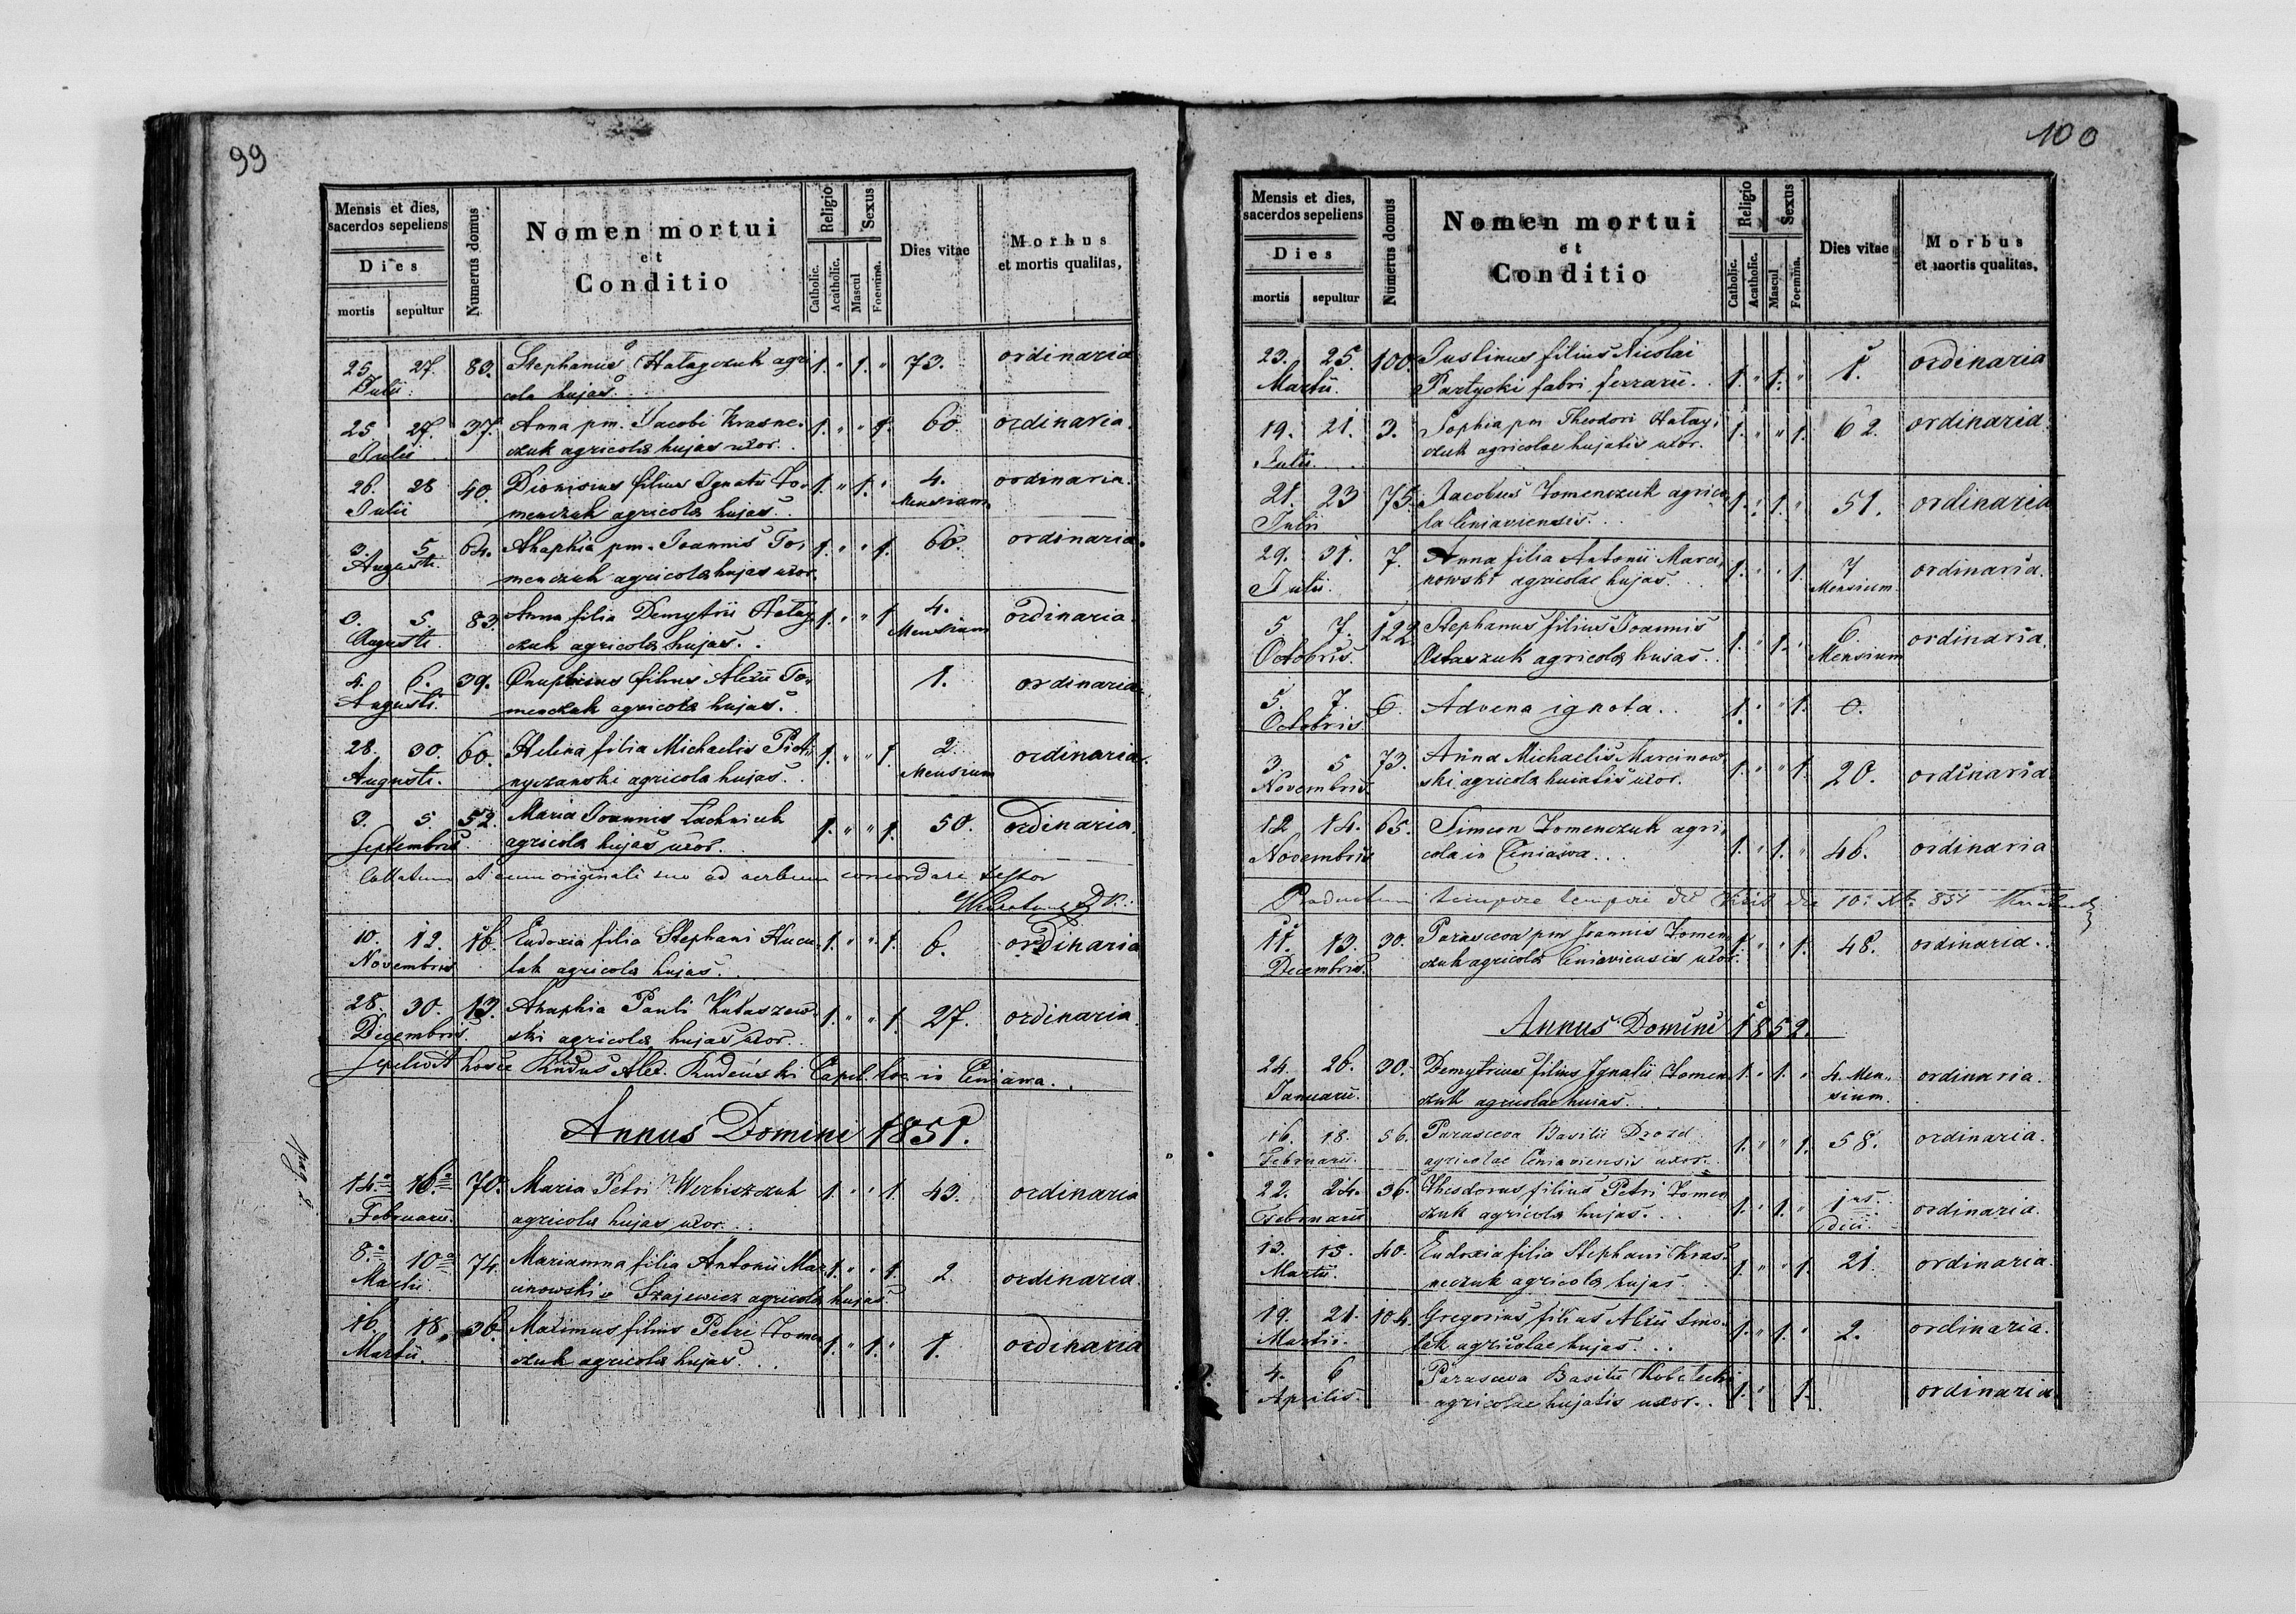 99
Mensis et dies,
sacerdos sepeliens
Dies
mortis sepultur
Numerus domus
Nomen mortui
et
Conditio
Religio
Catholic.
Acatholic.
Sexus
Mascul
Foemina.
Dies vitae
Morbus
et mortis qualitas,
25 27. 83. Stephanus Hatayczuk agri 1. " 1. " 73. ordinaria
Julii cola hujas.
25 27. 37. Anna pm. Jacobi Krasne- 1. " " 1. 60 ordinaria.
Julii czuk agricola hujas uxor.
26. 28 40. Dionisius filius Ignatii To- 1. " 1. " 4. ordinaria.
Julii menczuk agricola hujas. Mensium
3. 5. 64. Ahaphia pm. Joannis To- 1. " " 1. 60. ordinaria.
Augusti menczuk agricola hujas uxor.
3. 5. 83. Anna filia Demytrii Hatay 1. " " 1 4. ordinaria.
Augusti. czuk agricola hujas. Mensium
4. 6. 39. Onuphrius filius Alexii To- 1. ordinaria
Augusti. menczuk agricola hujas.
28. 30. 60. Helena filia Michaelis Piat- 1. " " 1. 2. ordinaria.
Augusti. nyczanski agricola hujas. Mensium
3. 5. 52. Maria Joannis Lachniuk 1. " " 1. 50. ordinaria.
Septembris agricola hujas uxor.
Collatum et cum originali suo ad verbum concordare testor
10. 12. 16. Eudoxia filia Stephani Hucu- 1. " " 1. 6. ordinaria
Novembris lak agricola hujas.
28. 30. 13. Ahaphia Pauli Kutaszew- 1. " " 1. 27. ordinaria.
Decembris. ski agricola hujas uxor.
Sepelivit hosce Rndus Alex. Rudeński Capel. loc. in Ceniawa.
Annus Domini 1851.
pag 2.
14. 16. 70. Maria Petri Werbiszczuk 1. " " 1. 43. ordinaria
Februarii. agricola hujas uxor.
8. 10 74. Marianna filia Antonii Mar- 1. " " 1. 2. ordinaria.
Martii. cinowski v Szajewicz agricola hujas.
16. 18. 36. Maximus filius Petri Tomen 1. " 1. " 1. ordinaria
Martii. czuk agricola hujas.
100
Mensis et dies,
sacerdos sepeliens
Dies
mortis sepultur
Numerus domus
Nomen mortui
et
Conditio
Religio
Catholic.
Acatholic.
Sexus
Mascul
Foemina.
Dies vitae
Morbus
et mortis qualitas,
23. 25. 100. Justinus filius Nicolai 1. ordinaria
Martii. Partycki fabri ferrarii. 1. " 1. "
19. 21. 3. Sophia pm Theodori Hatay- 1. " " 1. 62. ordinaria.
Julii. czuk agricolae hujatis uxor.
21. 23 75. Jacobus Tomenczuk agrico- 1. " 1. " 51. ordinaria
Julii la Ceniaviensis.
29. 31. 7. Anna filia Antonii Marci- 1. " " 1. 7 ordinaria.
Julii. nowski agricolae hujas. Mensium.
5 7. 122 Stephanus filius Joannis 1. " 1. " 6. ordinaria.
Octobris. Ostaszuk agricola hujas. Mensium
5. 7. 6. Advena ignota. 1. " " 1. 0.
Octobris
3. 5 73. Anna Michaelis Marcinow- 1. " " 1. 20. ordinaria
Novembris ski agricola huiatis uxor.
12 14. 65. Simeon Tomenczuk agri- 1. " 1. " 46. ordinaria
Novembris cola in Ceniawa.
11. 13. 30. Parasceva pm Joannis Tomen 1. " " 1. 48. ordinaria.
Decembris. czuk agricola Ceniaviensis uxor.
Annus Domini 1852.
24. 26. 30. Demytrius filius Ignatii Tomen 1. " 1. " 4. Men- ordinaria.
Januarii. czuk agricolae hujas. sium.
16. 18. 56. Parasceva Basilii Drozd 1. " " 1. 58. ordinaria.
Februarii. agricolae Ceniaviensis uxor.
22. 24. 36. Theodorus filius Petri Tomen 1. " 1. " 1us ordinaria.
Februarii czuk agricola hujas. Diei
13. 15. 40. Eudoxia filia Stephani Kras- 1. " " 1. 21 ordinaria.
Martii. neczuk agricola hujas.
19. 21. 104. Gregorius filius Alexii Smo- 1. " 1. " 2. ordinaria.
Martii. lak agricolae hujas.
4. 6 Parasceva Basilii 1. " 1. ordinaria.
Aprilis. agricolae hujatis uxor.